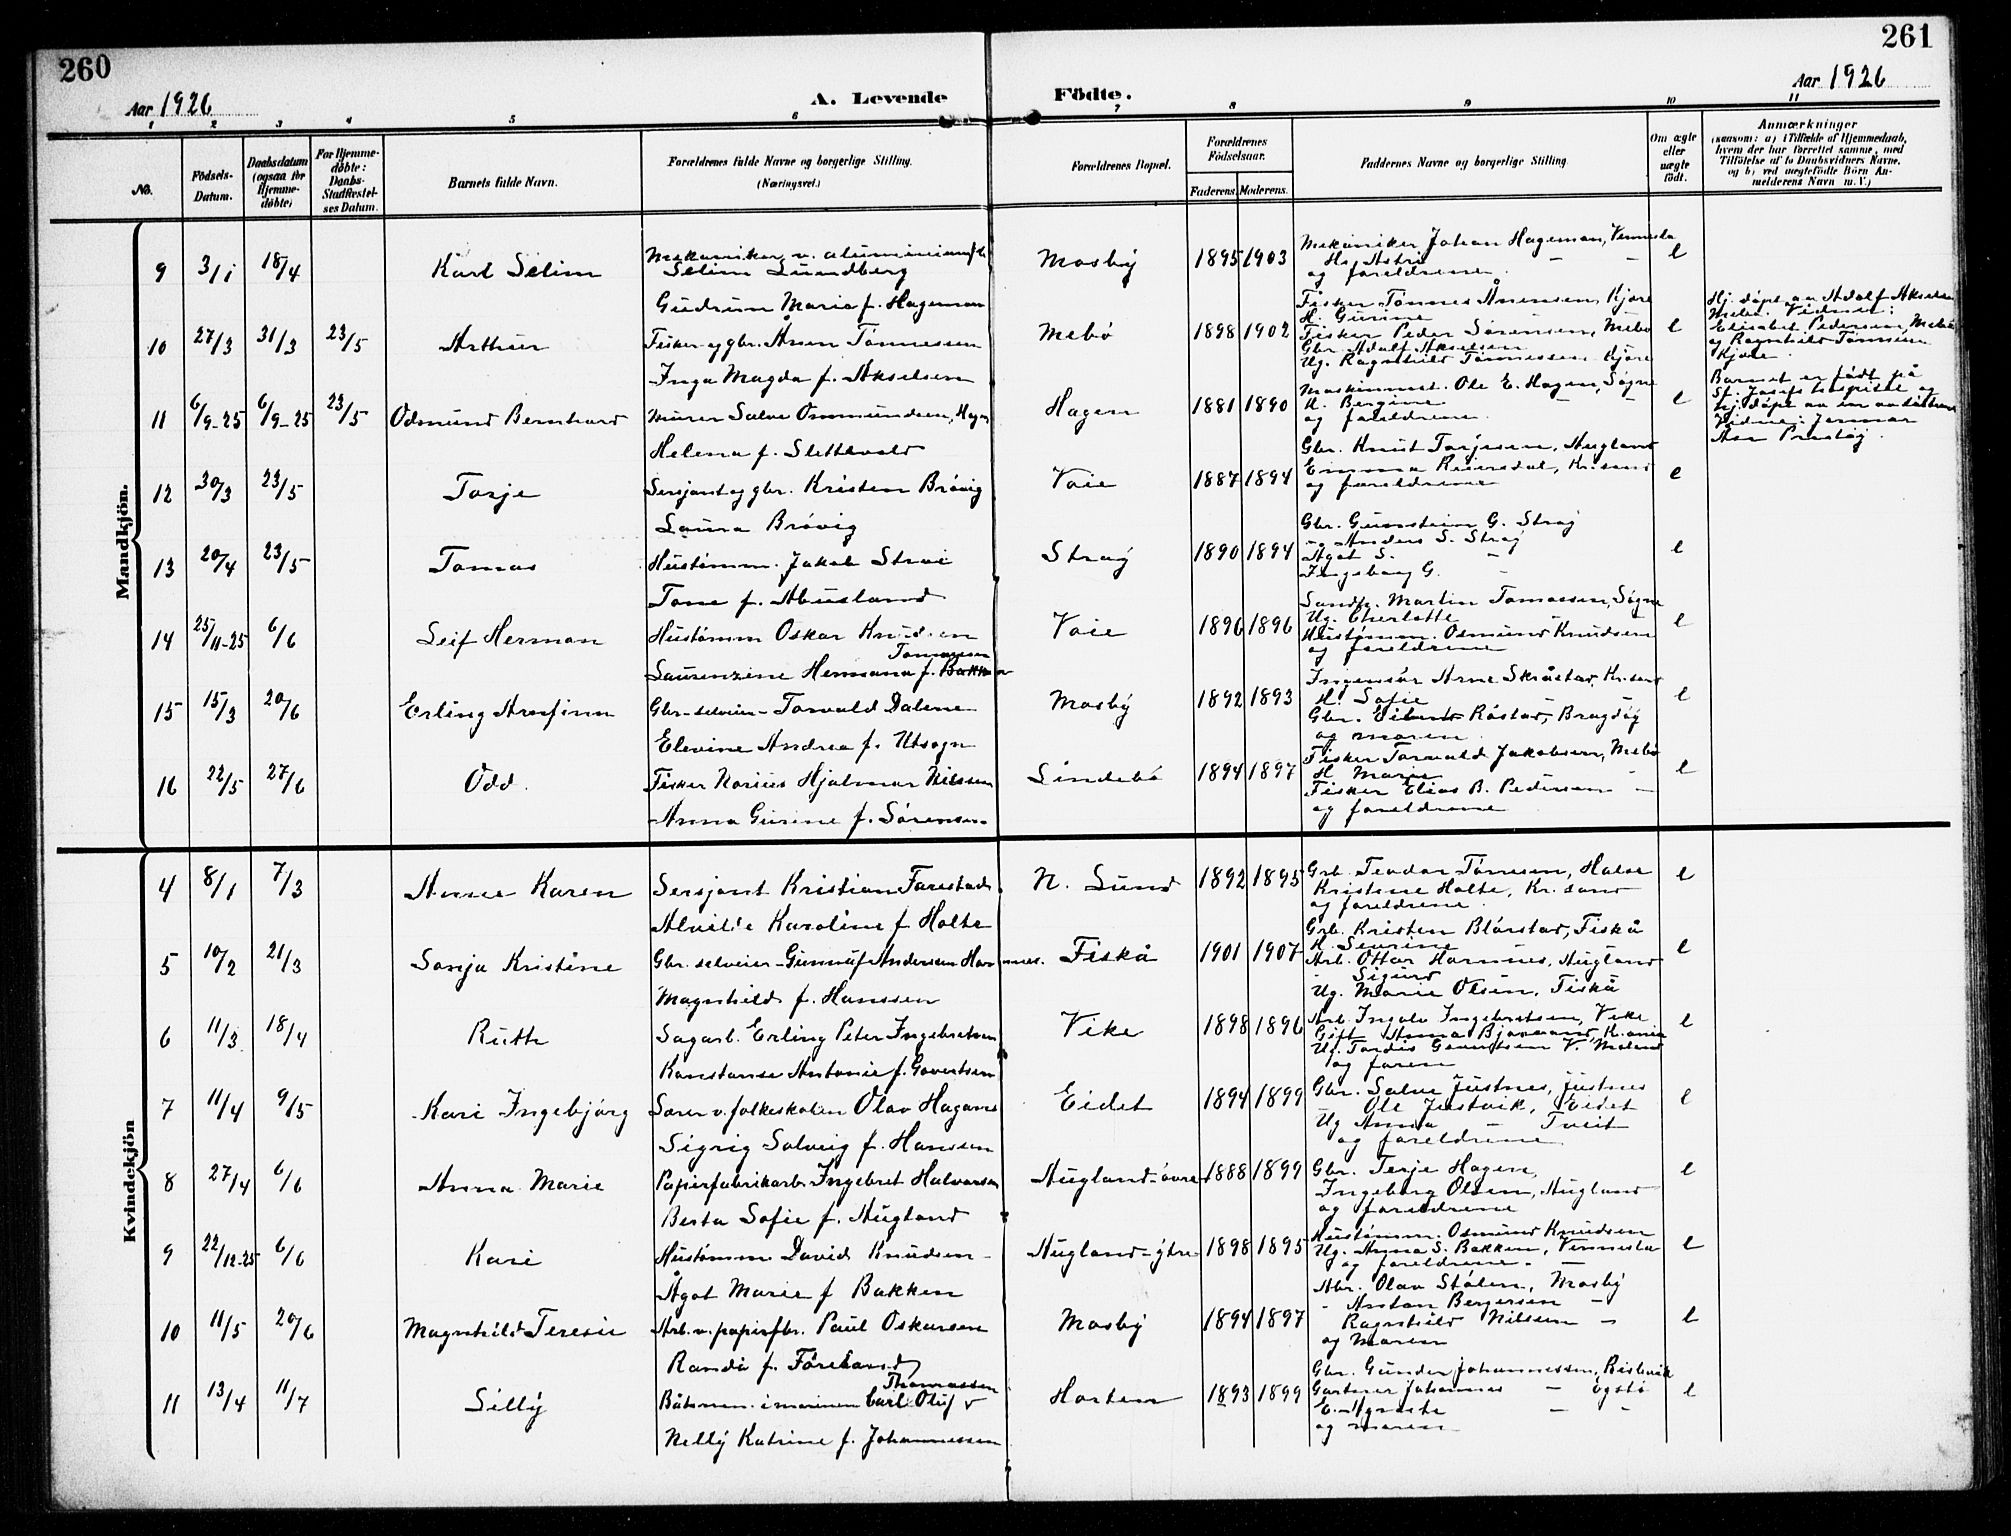 260
261
Aar 1926
A. Levende Födte.
Aar 1926
1 2 3 4 5 6 7 8 9 10 11
No.
Födsels-Datum.
Daabsdatum (ogsaa for Hjemme-döbte)
For Hjemme-döbte: Daabs-Stadfæstel-ses Datum.
Barnets fulde Navn.
Forældrenes fulde Navne og borgerlige Stilling. (Næringsvei.)
Forældrenes Bopæl.
Forældrenes Födselsaar.
Faderens. Moderens.
Faddernes Navne og borgerlige Stilling.
Om ægte eller uægte födt.
Anmærkninger
(saasom: a) i Tilfælde af Hjemmedaab,
hvem der har forrettet samme, med
Tilföielse af to Daabsvidners Navne,
og b) ved uægtefödte Börn An-
melderens Navn m. V.)
Mandkjön.
9 3/1 18/4 Karl Selim
Mekaniker v. aluminium
Selim Lundberg
Gudrun Marie f. Hageman
Mosby 1895 1903
Mekaniker Johan Hageman, Vennesla
H. Astri — —
og foreldrene.
e
10 27/3 31/3 23/5 Arthur
Fisker og gbr. Ånen Tønnessen
Inga Magda f. Akselsen
Mebø 1898 1902
Fisker Tønnes Ånensen, Kjøre
H. Gurine
Fisker Peder Sørensen, Mebø
Gbr. Adolf Akselsen
Ug. Ragnhild Tønnessen Kjøre
e
Hj. døpt av Adolf Akselsen
Mebø. Vidner:
Elisabet Pedersen, Mebø
og Ragnhild Tønnesen
Kjøre.
11 6/9-25 6/9-25 23/5 Odmund Bernhard
Murer Salve Osmundsen, Hagen
Helena f. Slettevold
Hagen 1881 1890
Maskinmest. Ole E. Hagen, Søgne
H. Bergine — —
og foreldrene.
e
Barnet er født på
St. Josefs hospital og
hj. døpt av en av søstrene
Vidne:
12 30/3 23/5 Torje
Sersjant og gbr. Kristen Brøvig
Laura Brøvig
Voie 1887 1894
Gbr. Knut Torjesen, Augland
Emma Reiersdal, Kr.sand
og foreldrene
e
13 20/4 23/5 Tomas
Hustømm. Jakob Strai
Tone f. Abusland
Stray 1890 1894
Gbr. Gunstein G. Stray
— Anders S. Stray
Agot S. —
Ingeborg G. —
e
14 25/11-25 6/6 Leif Herman
Hustømm Oskar Knudsen
Tomassen
Laurenzine Hermana f. Bakken
Voie 1896 1896
Sandf. Martin Tomassen, Søgne
Ug. Charlotte —
Hustømm. Osmund Knudsen
og foreldrene
e
15 15/3 20/6 Erling Arnfinn
Gbr-selveier- Torvald Dalene
Elevine Andrea f. Utsogn
Mosby 1892 1893
Ingeniør Arne Skråstad, Kr.sand
H. Sofie —
Gbr. Eilert Røstad, Bragdøy
og moren.
e
16 22/5 27/6 Odd.
Fisker Norius Hjalmar Nilssen
Anna Gurine f. Sørensen.
Lindebø 1894 1897
Fisker Torvald Jakobsen, Mebø
H. Marie
Fisker Elias B. Pedersen —
og foreldrene
e
Kvindekjön
4 8/1 7/3 Anne Karen
Sersjant Kristian Farestad
Alvilde Karoline f Holte
N. Lund 1892 1895
Grb. Teodor Tønnesen, Halse
Kristine Holte, Kr. sand
og foreldrene.
e
5 10/2 21/3 Sonja Kristine
Gbr. selveier- Gunnuf Andersen Hamnes.
Magnhild f. Hanssen
Fiskå 1901 1907
Grb. Kristen Blørstad, Fiskå
H. Severine
Arb. Ottar Hamnes, Augland
Sigurd
Ug. Marie Olsen, Fiskå
e
6 11/3 18/4 Ruth
Sagarb. Erling Peter Ingebretsen
Konstanse Antonie f. Govertsen
Vike 1898 1896
Arb. Ingolv Ingebretsen, Vike
Gift Anna Bjorvand, K.ania
Ug. Tordis Govertsen V. Moland
og faren
e
7 11/4 9/5 Kari Ingebjørg
Lærer v. folkeskolen Olav Hagane
Sigrig Solveig f. Hansen
Eidet 1894 1899
Gbr. Salve Justnes, Justnes
Ole Justvik, Eidet
Ug Anna — Tveit
og foreldrene
e
8 27/4 6/6 Anna Marie
Papirfabrikarb. Ingebret Halvorsen
Berta Sofie f. Augland
Augland-øvre 1888 1899
Gbr. Terje Hagen,
Ingeborg Olsen, Augland
og foreldrene
e
9 22/12-25 6/6 Kari
Hustømm David Knudsen —
Ågot Marie f Bakken
Augland-ytre 1898 1895
Hustømm. Osmund Knudsen
Ug. Anna S. Bakken, Vennesla
og foreldrene. —
e
10 11/5 20/6 Magnhild Teresie
Arb. v. papirfbr. Paul Oskarsen
Randi f. Føreland
Mosby 1894 1897
Abr. Olav Stølen, Mosby
- Anton Bergersen —
Ragnhild Nilsen —
og Moren
e
11 13/4 11/7 Silly
Thomassen
Båtsmn. i marinen Carl Oluf
Nelly Katrine f. Johannessen
Horten 1893 1899
Gbr. Gunder Johannessen,
Gartner Johannes — Ogsbø
— —
og moren
e